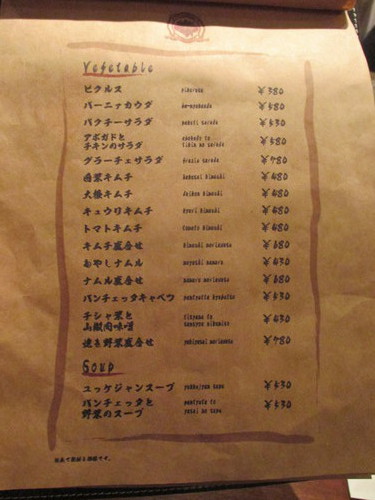 Vegetable
ピクルス ¥380
バーニャカウダ ¥680
パクチーサラダ ¥430
アボガドと
チキンのサラダ ¥480
グラーチェサラダ ¥780
白菜キムチ hakusai kimuchi ¥480
大根キムチ daikon kimuchi ¥480
キュウリキムチ kyuri kimuchi ¥480
トマトキムチ tomato kimuchi ¥480
キムチ盛合せ kimuchi moriawase ¥680
もやしナムル moyashi namuru ¥430
ナムル盛合せ namuru moriawase ¥680
パンチェッタキャベツ ¥430
チシャ菜と
山賊肉味噌 ¥430
焼き野菜盛合せ yakiyasai moriawase ¥780
Soup
ユッケジャンスープ ¥430
パンチェッタと
野菜のスープ yasai no supu ¥430